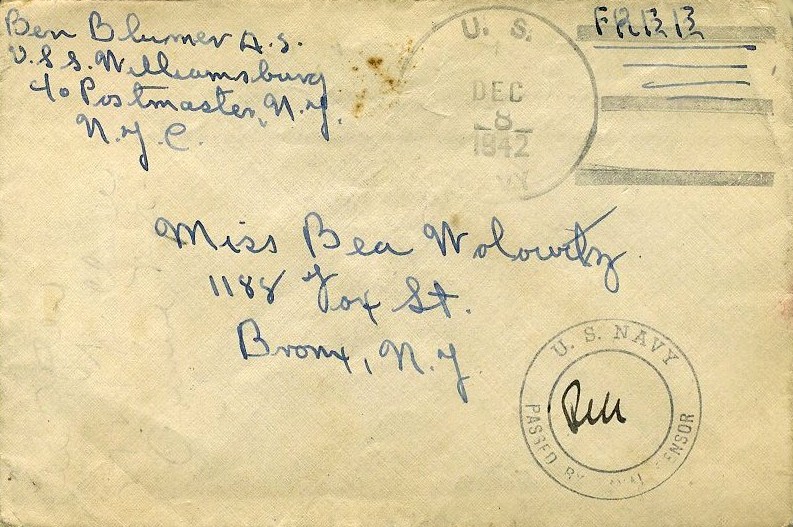 Ben Blumer A.S.
U.S.S. Williamsburg
c/o Postmaster, N.Y.
N.Y.C.
U. S.
DEC
8
1942
FREE
Miss Bea Wolowitz
1188 Fox St.
Bronx, N.Y.
U. S. NAVY
PASSED BY